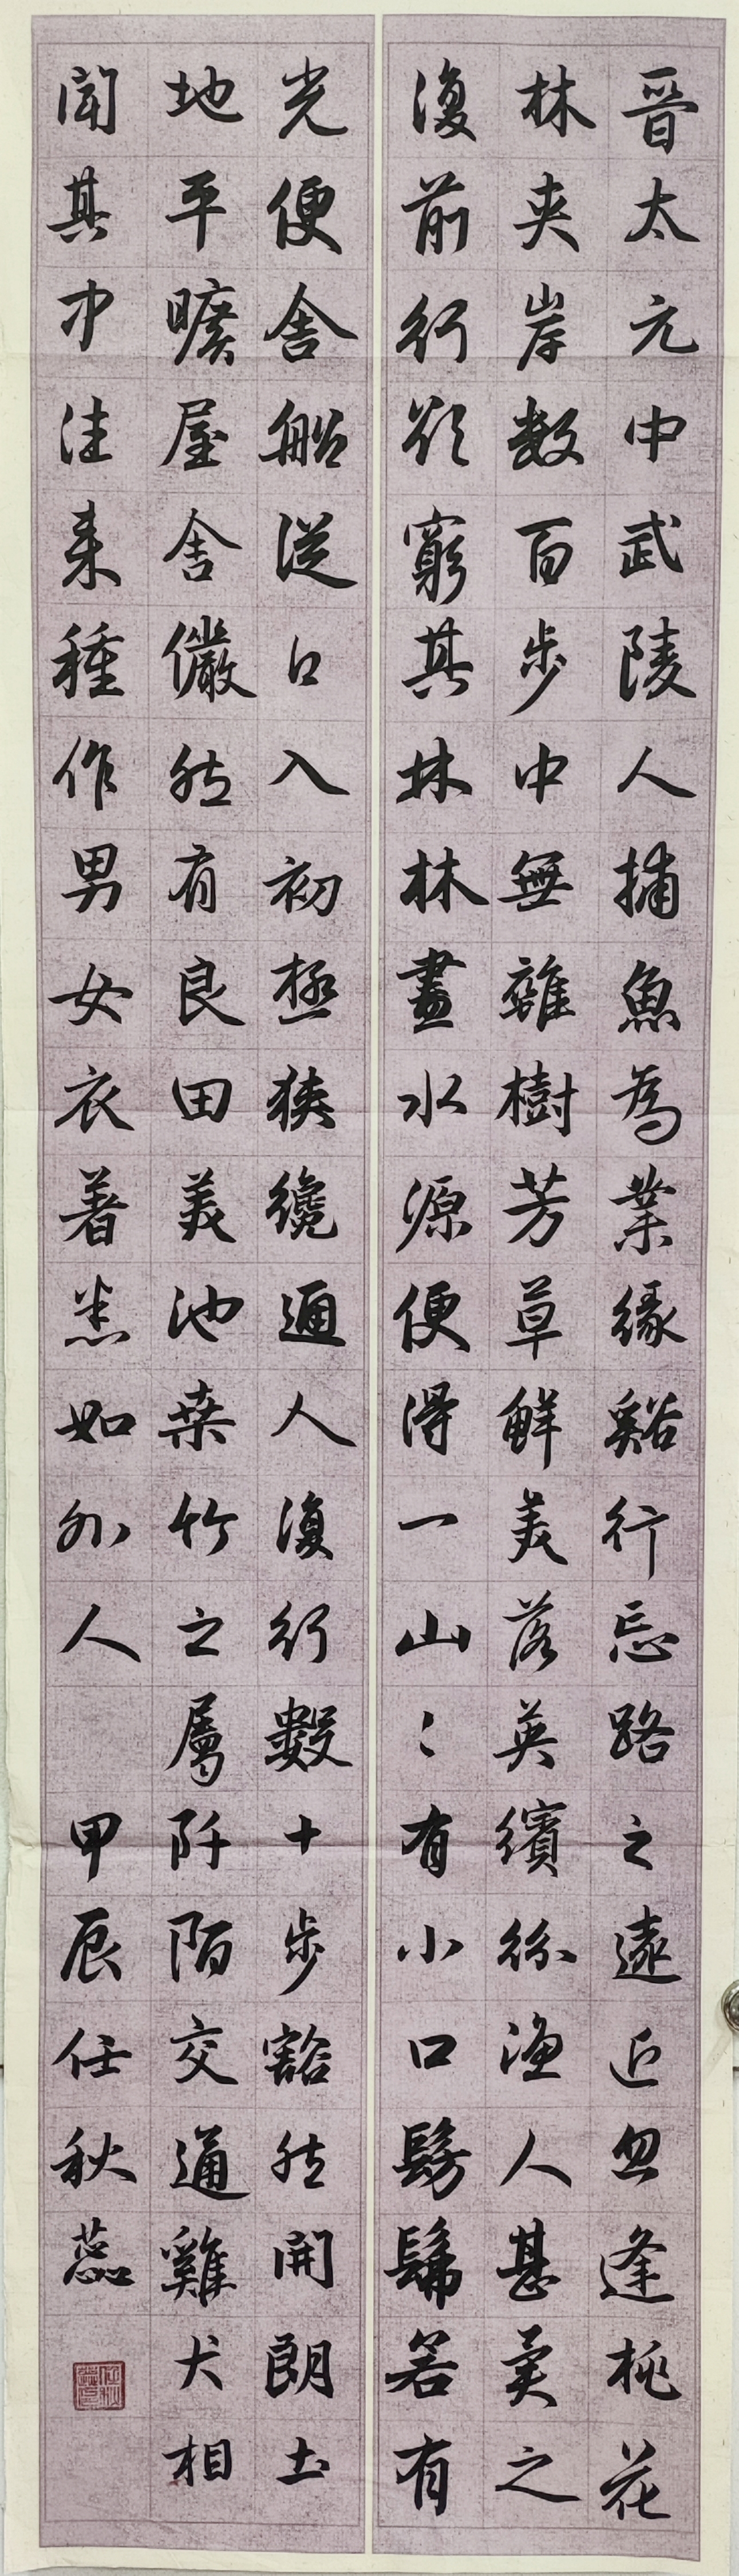 晉太元中武陵人捕魚為業緣谿行忘路之遠近忽逢桃花
林夾岸數百步中無雜樹芳草鮮美落英繽紛漁人甚異之
復前行欲窮其林林盡水源便得一山〻有小口髣髴若有
光便舍船從口入初極狹纔通人復行數十步豁然開朗土
地平曠屋舍儼然有良田美池桑竹之屬阡陌交通雞犬相
聞其中往來種作男女衣著悉如外人 甲辰任秋蕊